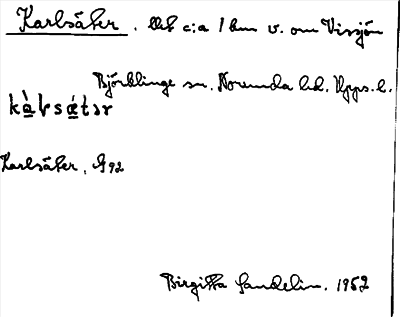 Karlsäter. Ust c:a 1 km v. om Vissjön
Björklinge sn. Norunda hd. Upps. l.
kà̱ḷsǽ̱tər
Karlsäter, G 92
Birgitta Sandelin. 1952